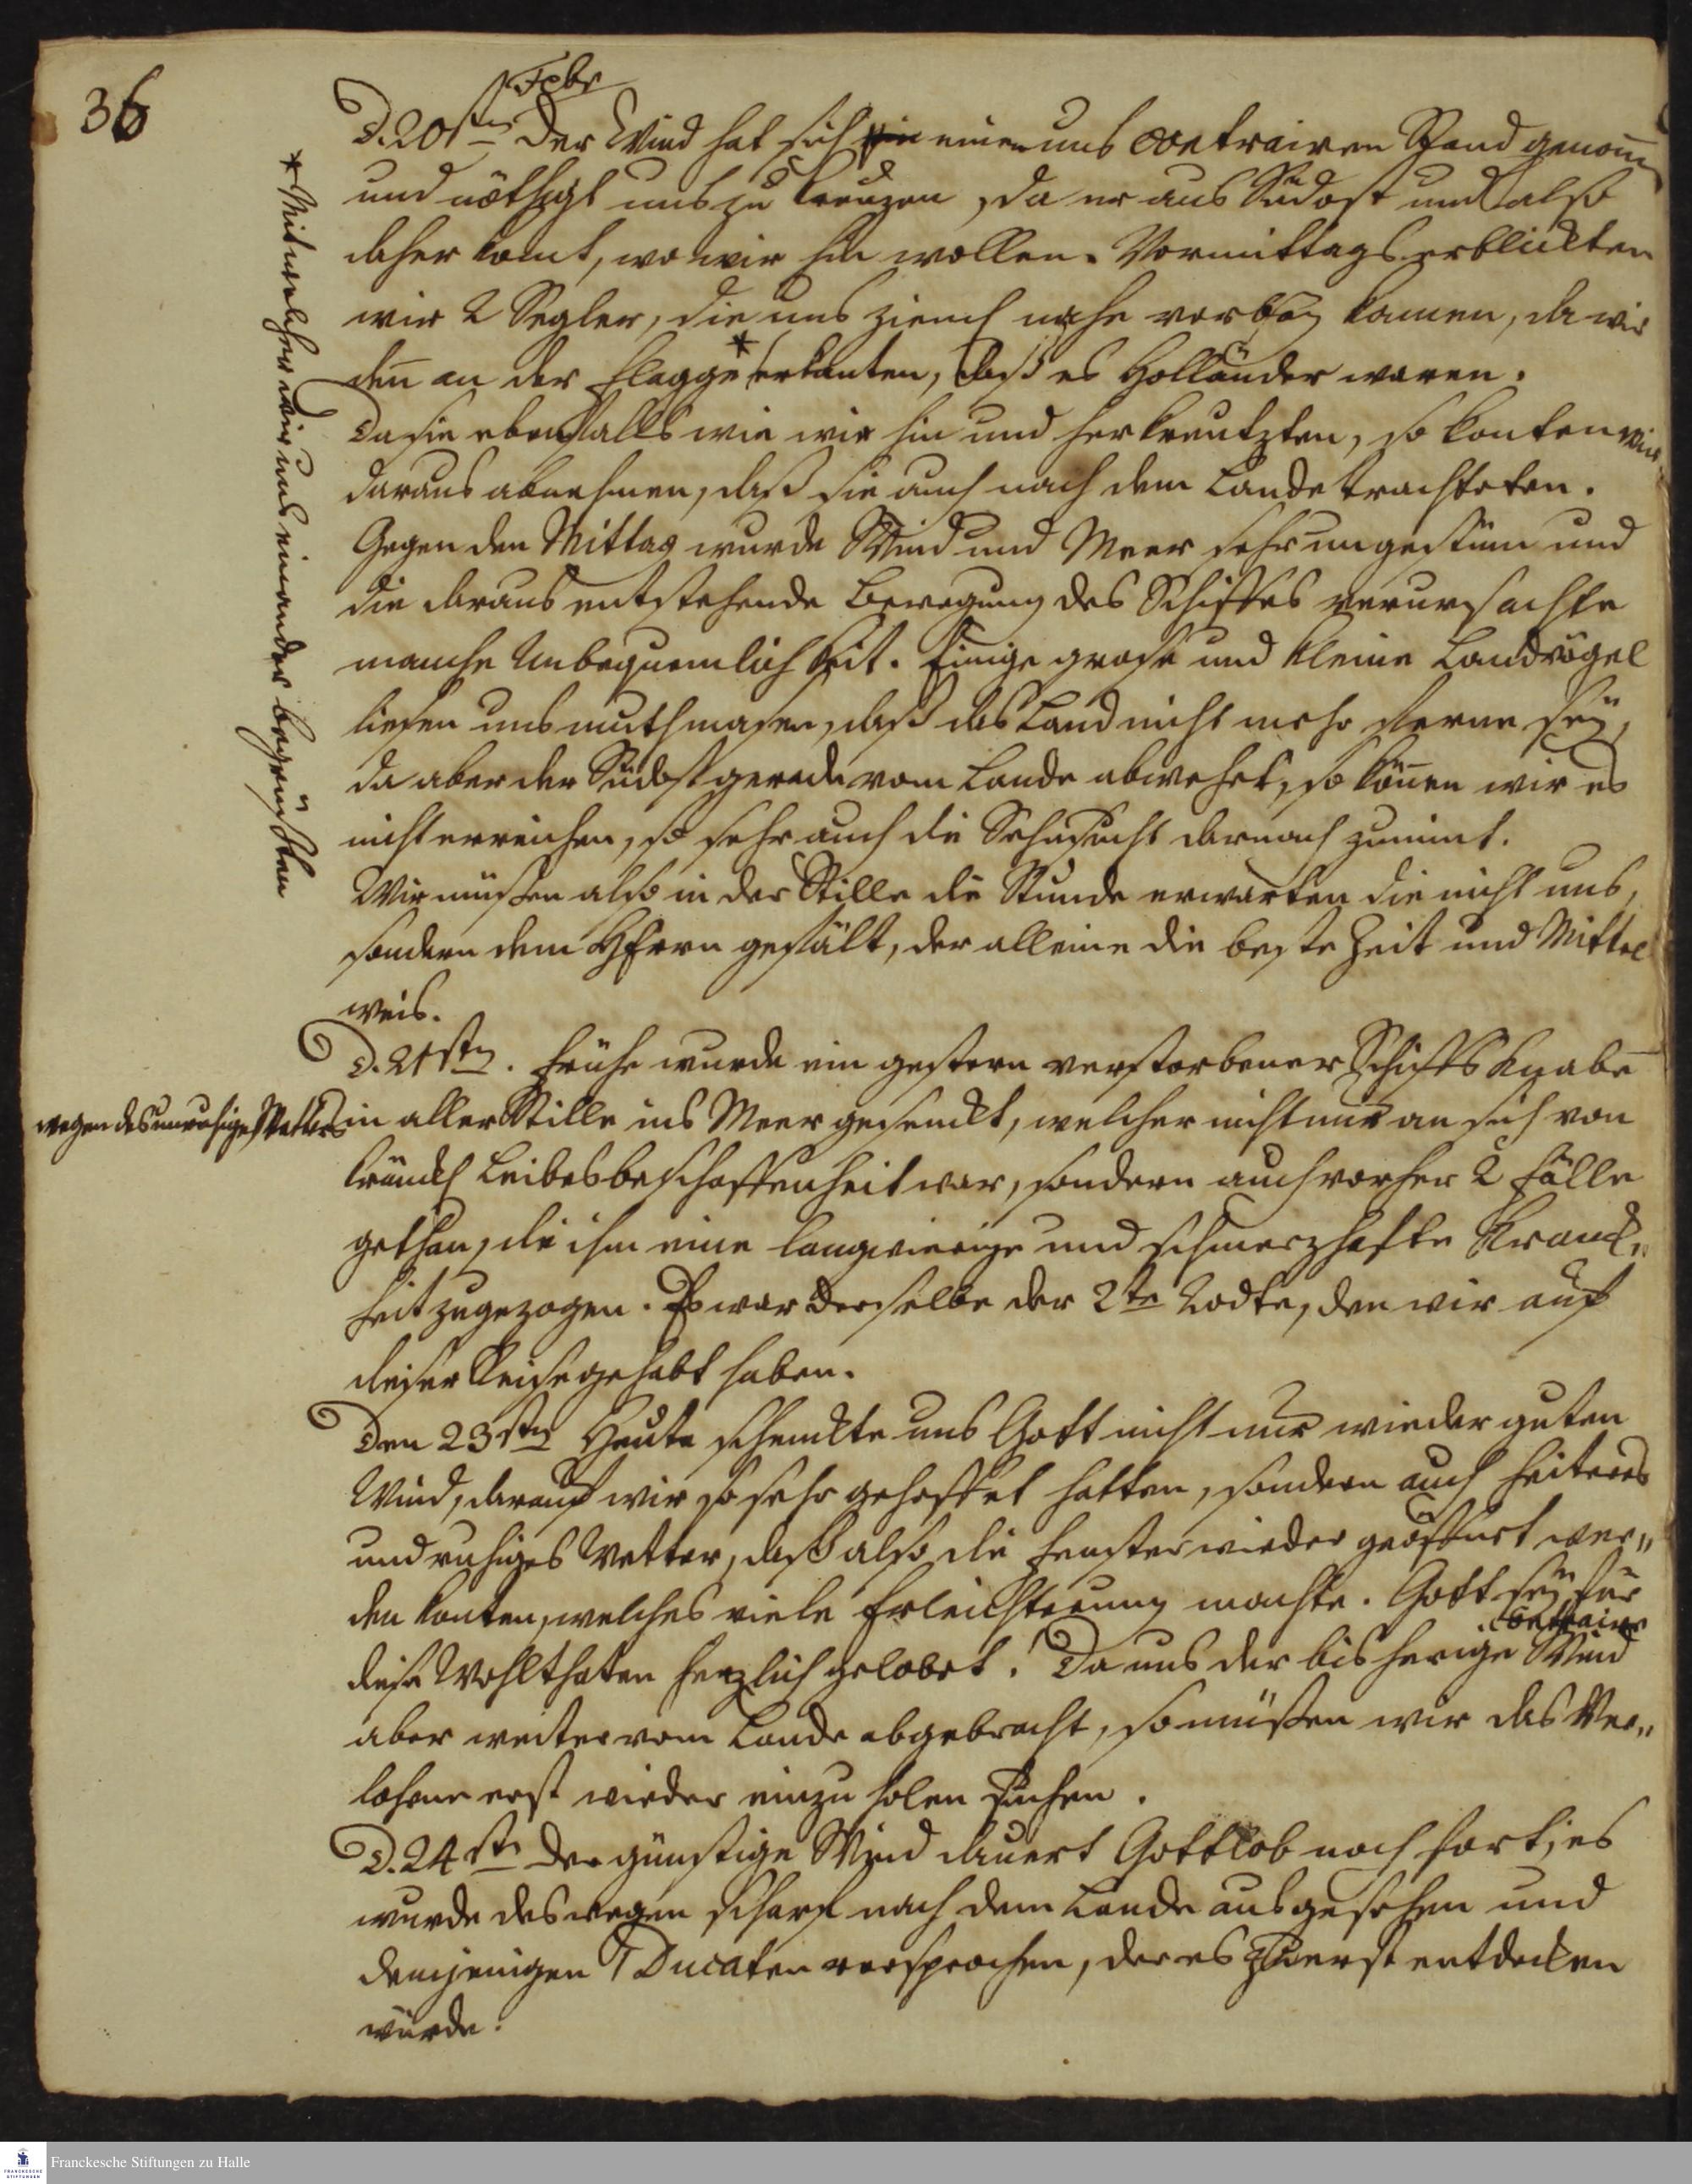 36
Febr
D. 20sten Der Wind hat sich einen uns contrairen Stand genom̅
und nöthigt uns zu kreuzen, da er aus Südost und also
daher komt, wo wir hin wollen. Vormittags erblickten
wir 2 Segler, die uns zieml. nahe vorbey kamen, da wir
den̅ an der Flagge * erkanten, daß es Holländer waren.
Da sie ebenfalls wie wir hin und her kreutzten, so konten wir
daraus abnehmen, daß sie auch nach dem Lande trachteten.
Gegen den Mittag wurde Wind und Meer sehr ungestüm und
die daraus entstehende Bewegung des Schiffes verursachte
manche Unbequemlichkeit. Einige grose und kleine Landvögel
liesen uns muthmasen, daß das Land nicht mehr ferne sey,
da aber der Südost gerade vom Lande abwehet, so kön̅en wir es
nicht erreichen, so sehr auch die Sehnsucht darnach zunimt.
Wir müssen also in der Stille die Stunde erwarten die nicht uns,
sondern dem HErrn gefält, der alleine die beste Zeit und Mittel
weis.
* Mit welcher wir uns einander begrüssten
D. 21sten. Frühe wurde ein gestern verstorbener Schiffs Knabe
wegen des unruhigen Wetters in aller Stille ins Meer gesenckt, welcher nicht nur an sich von
kränckl. Leibesbeschaffenheit war, sondern auch vorher 2 Fälle
gethan, die ihm eine langwierige und schmerzhafte Kranck„
heit zugezogen. Es war derselbe der 2te Todte, den wir auf
dieser Reise gehabt haben.
Den 23sten Heute schenckte uns Gott nicht nur wieder guten
Wind, darauf wir so sehr gehoffet hatten, sondern auch heiteres
und ruhiges Wetter, daß also die Fenster wieder geöffnet wer„
den konten, welches viele Erleichterung machte. Gott sey für
contraire
diese Wohlthaten herzlich gelobet! Da uns der bisherige Wind
aber weiter vom Lande abgebracht, so müssen wir das Ver„
lohrne erst wieder einzuholen suchen.
D. 24sten Der günstige Wind dauert Gottlob noch fort, es
wurde deswegen scharf nach dem Lande ausgesehen und
demjenigen 1 Ducaten versprochen, der es zuerst entdecken
würde.
FRANCKESCHE STIFTUNGEN
Franckesche Stiftungen zu Halle